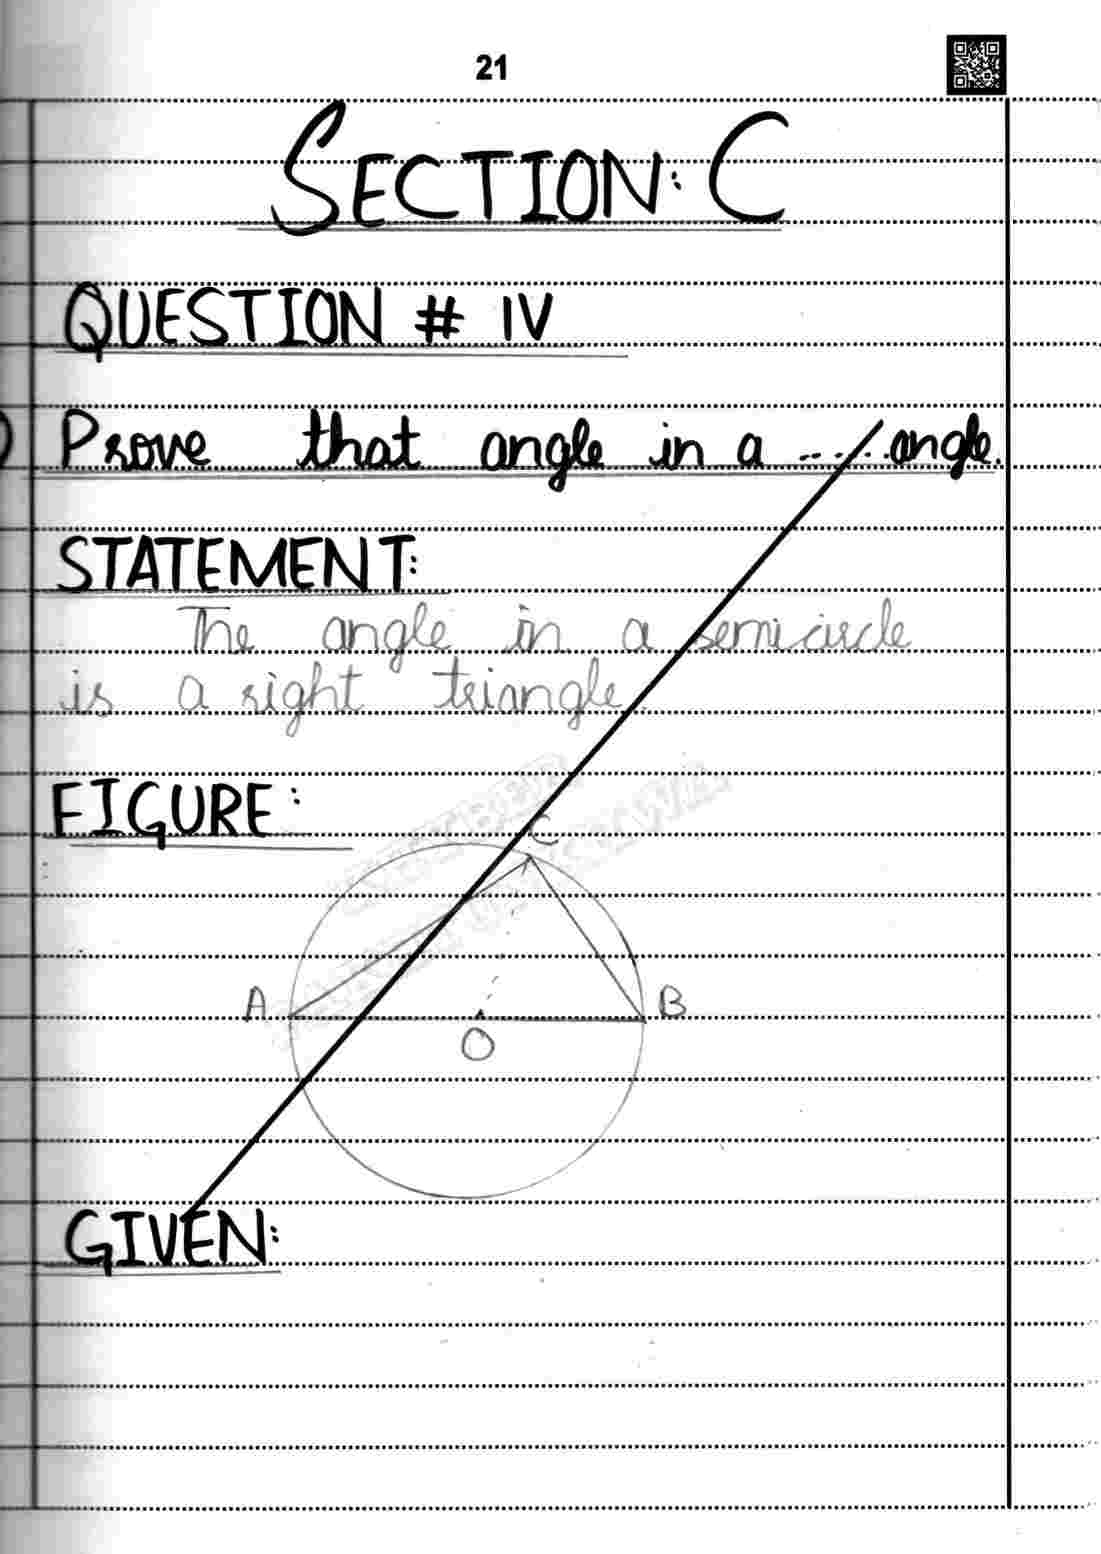 21
SECTION: C
QUESTION # IV
Prove that angle in a ...... angle.
STATEMENT:
The angle in a semicircle
is a right triangle.
FIGURE:
C
A
B
O
GIVEN: